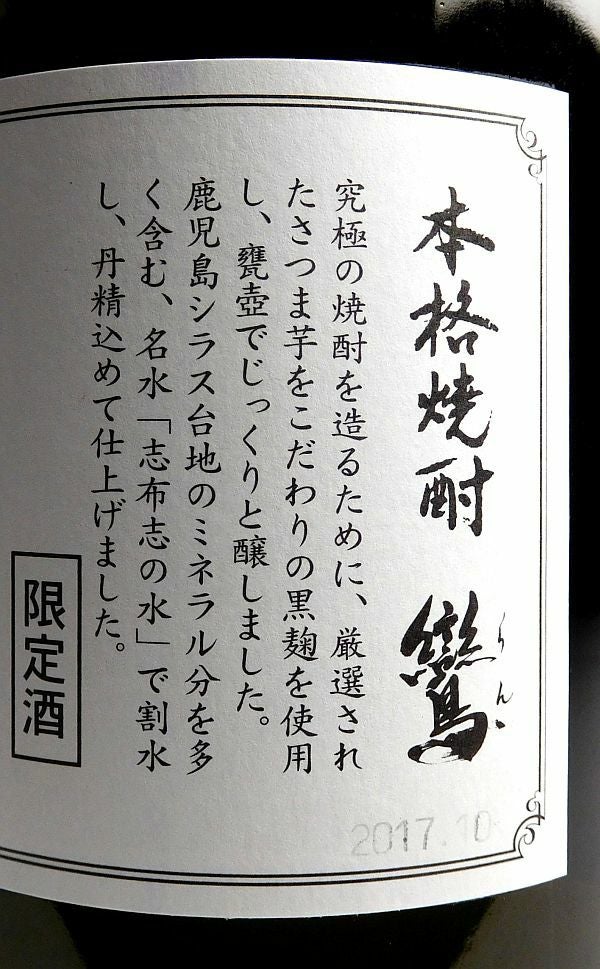 本格焼酎 鸞
らん
究極の焼酎を造るために、厳選され
たさつま芋をこだわりの黒麹を使用
し、甕壺でじっくりと醸しました。
鹿児島シラス台地のミネラル分を多
く含む、名水「志布志の水」で割水
し、丹精込めて仕上げました。
限定酒
2017.10